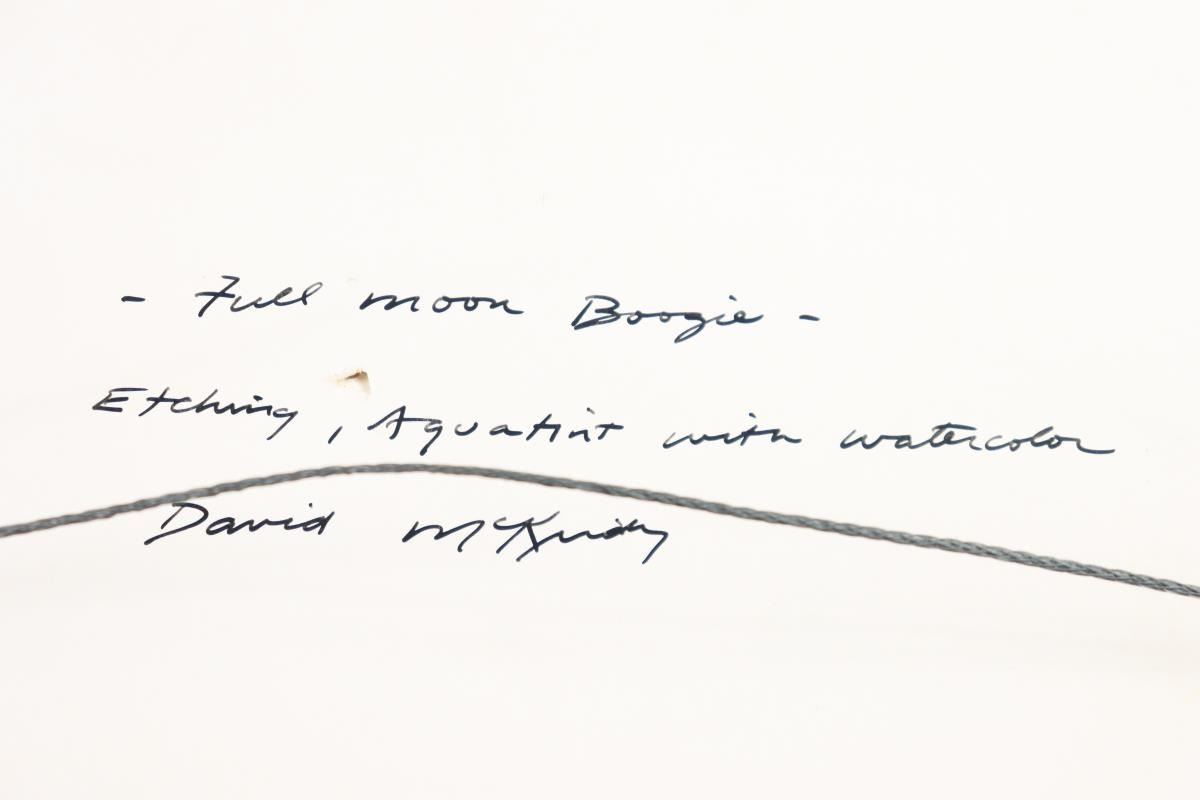 - Full moon Boogie -
Etching, Aquatint with watercolor
David